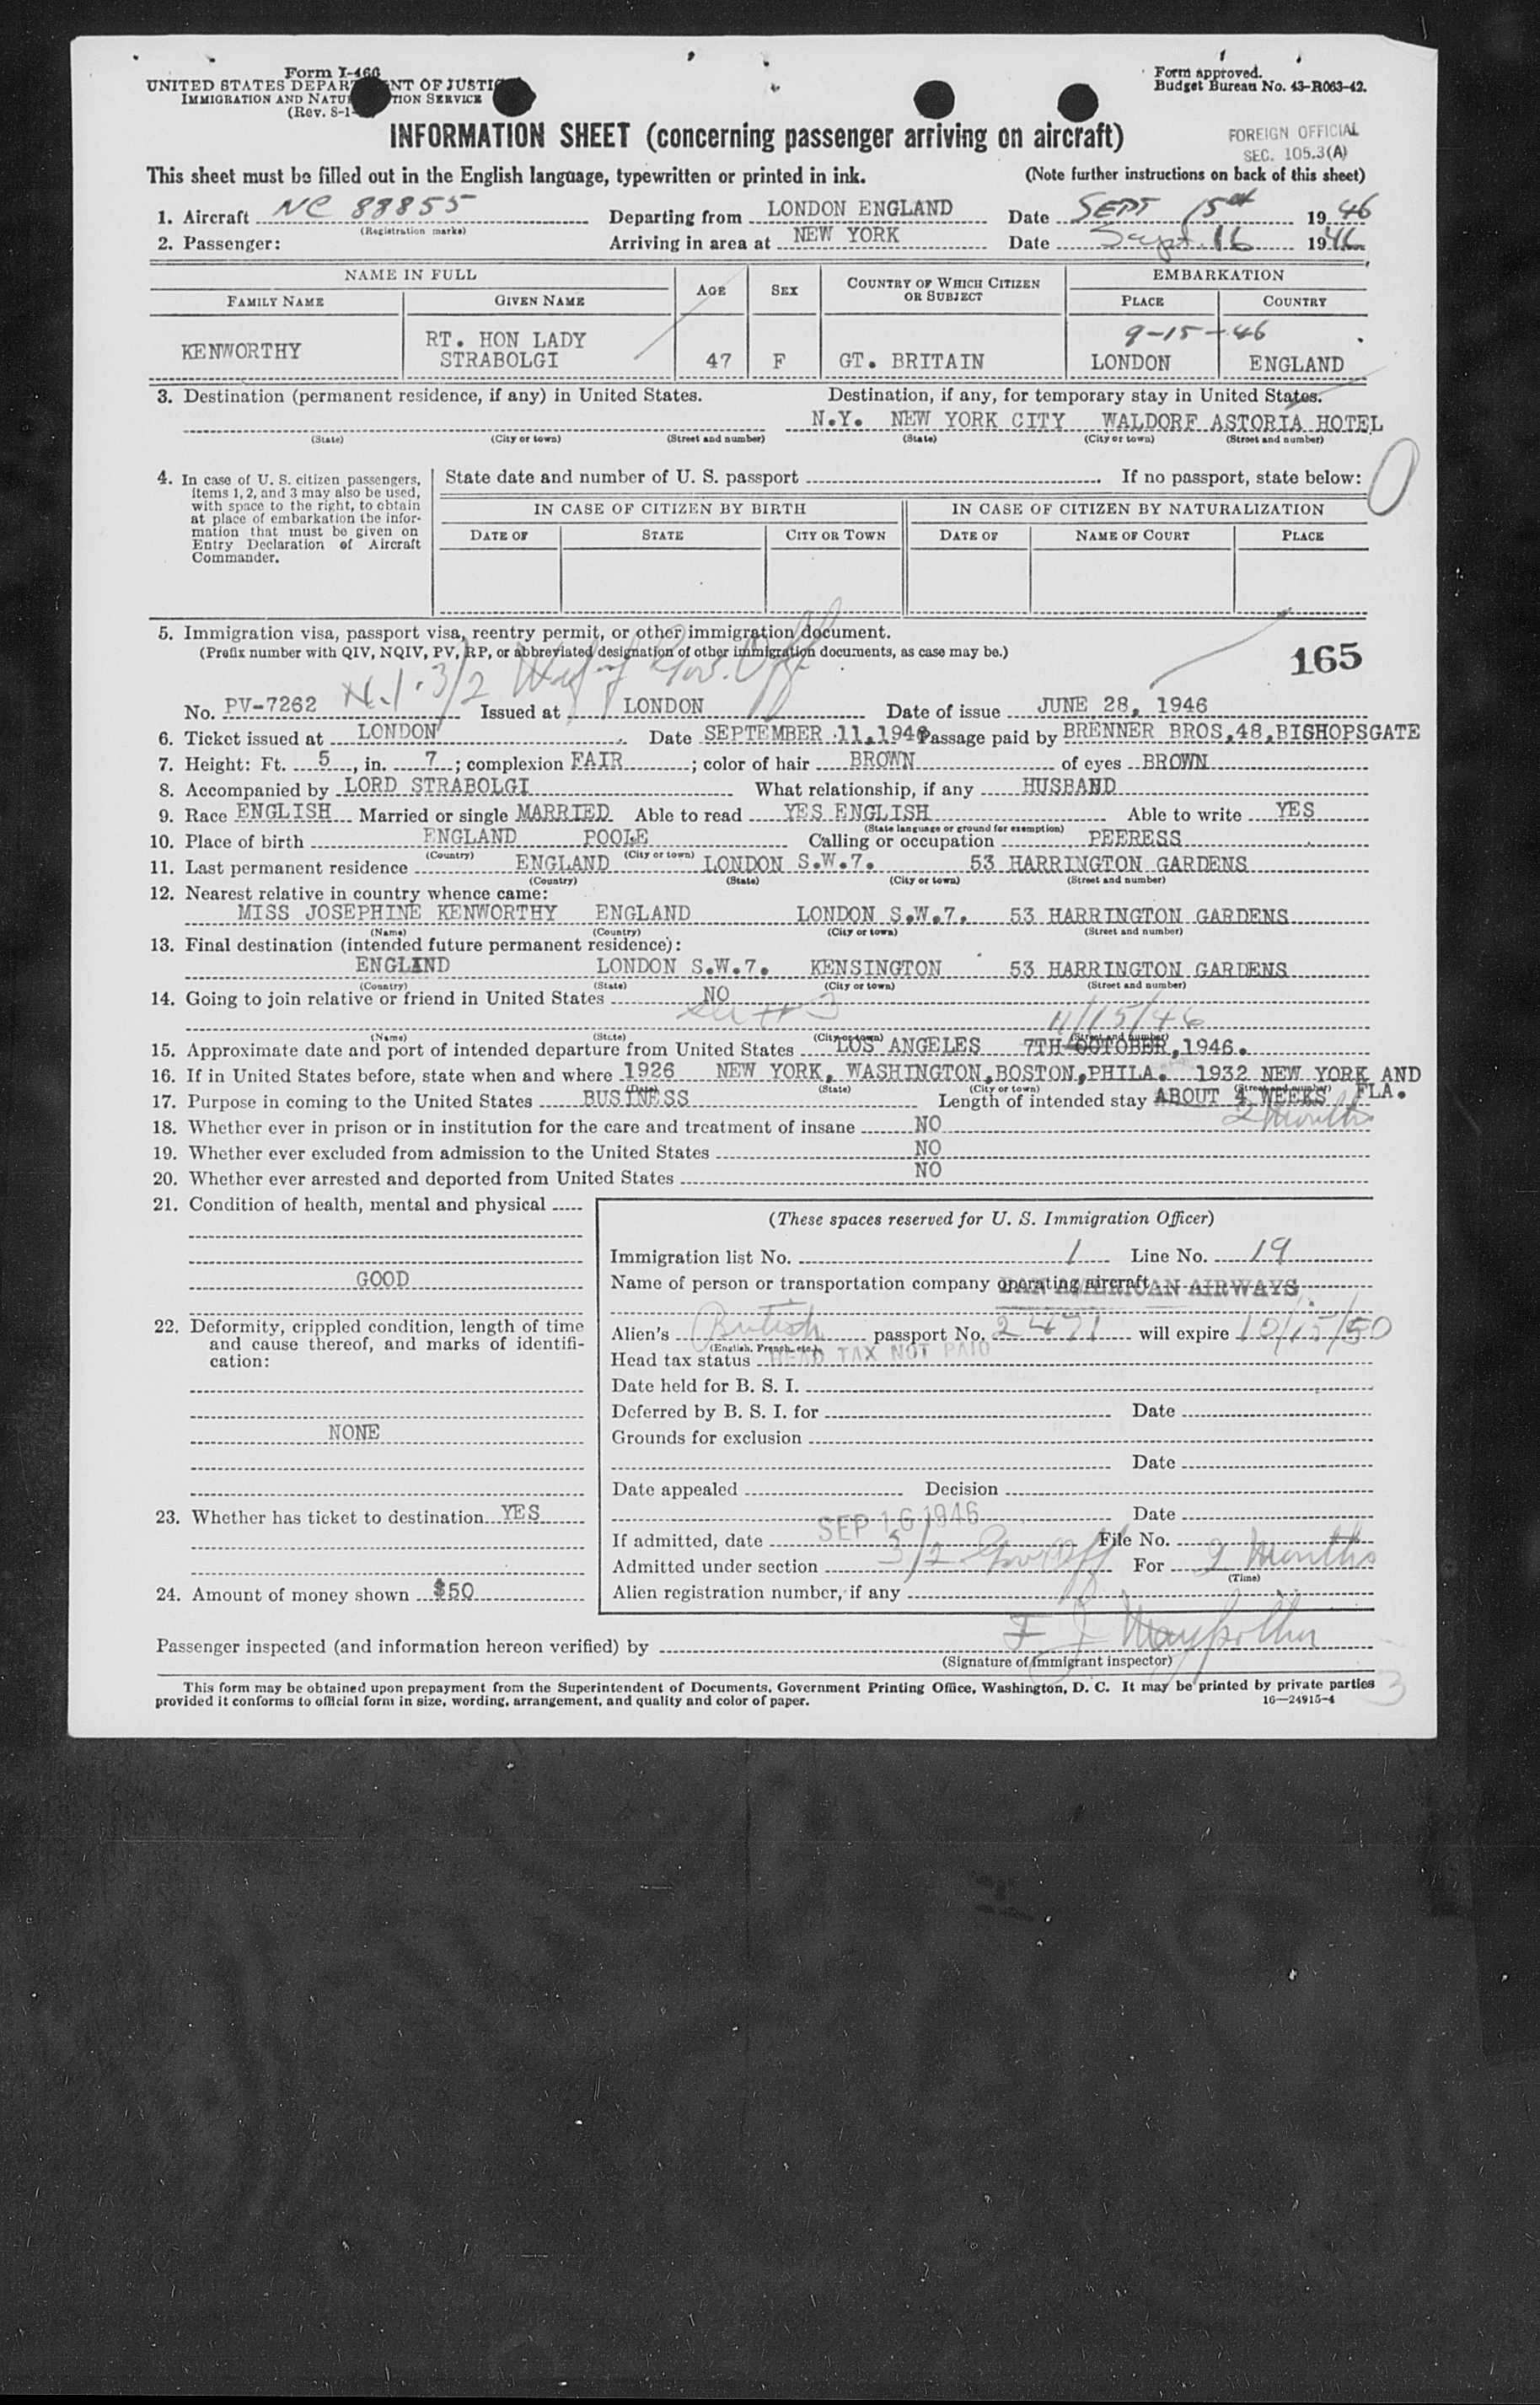 Form I-466
UNITED STATES DEPARTMENT OF JUSTICE
IMMIGRATION AND NATURALIZATION SERVICE
(Rev. 8-1-
Form approved.
Budget Bureau No. 43-R063-42.
INFORMATION SHEET (concerning passenger arriving on aircraft)
FOREIGN OFFICIAL
SEC. 105.3(A)
This sheet must be filled out in the English language, typewritten or printed in ink. (Note further instructions on back of this sheet)
1. Aircraft NC 88855 Departing from LONDON ENGLAND Date SEPT 15 1946
(Registration marks)
2. Passenger: Arriving in area at NEW YORK Date Sept. 16 1946
NAME IN FULL AGE SEX COUNTRY OF WHICH CITIZEN OR SUBJECT EMBARKATION
FAMILY NAME GIVEN NAME PLACE COUNTRY
9-15-46
KENWORTHY RT. HON LADY STRABOLGI 47 F GT. BRITAIN LONDON ENGLAND
3. Destination (permanent residence, if any) in United States. Destination, if any, for temporary stay in United States.
N.Y. NEW YORK CITY WALDORF ASTORIA HOTEL
(State) (City or town) (Street and number) (State) (City or town) (Street and number)
4. In case of U. S. citizen passengers, items 1, 2, and 3 may also be used, with space to the right, to obtain at place of embarkation the information that must be given on Entry Declaration of Aircraft Commander.
State date and number of U. S. passport If no passport, state below:
IN CASE OF CITIZEN BY BIRTH IN CASE OF CITIZEN BY NATURALIZATION
DATE OF STATE CITY OR TOWN DATE OF NAME OF COURT PLACE
5. Immigration visa, passport visa, reentry permit, or other immigration document.
(Prefix number with QIV, NQIV, PV, RP, or abbreviated designation of other immigration documents, as case may be.)
165
N.I. 3/2 Wife of Gov. Off
No. PV-7262 Issued at LONDON Date of issue JUNE 28, 1946
6. Ticket issued at LONDON Date SEPTEMBER 11,1946 Passage paid by BRENNER BROS,48,BISHOPSGATE
7. Height: Ft. 5, in. 7; complexion FAIR; color of hair BROWN of eyes BROWN
8. Accompanied by LORD STRABOLGI What relationship, if any HUSBAND
9. Race ENGLISH Married or single MARRIED Able to read YES ENGLISH Able to write YES
(State language or ground for exemption)
10. Place of birth ENGLAND POOLE Calling or occupation PEERESS
(Country) (City or town)
11. Last permanent residence ENGLAND LONDON S.W.7. 53 HARRINGTON GARDENS
(Country) (State) (City or town) (Street and number)
12. Nearest relative in country whence came:
MISS JOSEPHINE KENWORTHY ENGLAND LONDON S.W.7. 53 HARRINGTON GARDENS
(Name) (Country) (City or town) (Street and number)
13. Final destination (intended future permanent residence):
ENGLAND LONDON S.W.7. KENSINGTON 53 HARRINGTON GARDENS
(Country) (State) (City or town) (Street and number)
14. Going to join relative or friend in United States NO
11/15/46
(Name) (State) (City or town) (Street and number)
15. Approximate date and port of intended departure from United States LOS ANGELES 7TH OCTOBER,1946.
16. If in United States before, state when and where 1926 NEW YORK, WASHINGTON,BOSTON,PHILA. 1932 NEW YORK AND FLA.
(Date) (State) (City or town) (Street and number)
17. Purpose in coming to the United States BUSINESS Length of intended stay ABOUT 4 WEEKS
2 Months
18. Whether ever in prison or in institution for the care and treatment of insane NO
19. Whether ever excluded from admission to the United States NO
20. Whether ever arrested and deported from United States NO
21. Condition of health, mental and physical
GOOD
22. Deformity, crippled condition, length of time and cause thereof, and marks of identification:
NONE
23. Whether has ticket to destination YES
24. Amount of money shown $50
(These spaces reserved for U. S. Immigration Officer)
Immigration list No. 1 Line No. 19
Name of person or transportation company operating aircraft PAN AMERICAN AIRWAYS
Alien's British passport No. 2471 will expire 10/15/50
(English, French, etc.)
Head tax status HEAD TAX NOT PAID
Date held for B. S. I.
Deferred by B. S. I. for Date
Grounds for exclusion
Date
Date appealed Decision
Date
If admitted, date SEP 16 1946 File No.
Admitted under section 3/2 Gov Off For 2 Months
(Time)
Alien registration number, if any
Passenger inspected (and information hereon verified) by F J
(Signature of immigrant inspector)
This form may be obtained upon prepayment from the Superintendent of Documents, Government Printing Office, Washington, D. C. It may be printed by private parties
provided it conforms to official form in size, wording, arrangement, and quality and color of paper. 16—24915-4
3